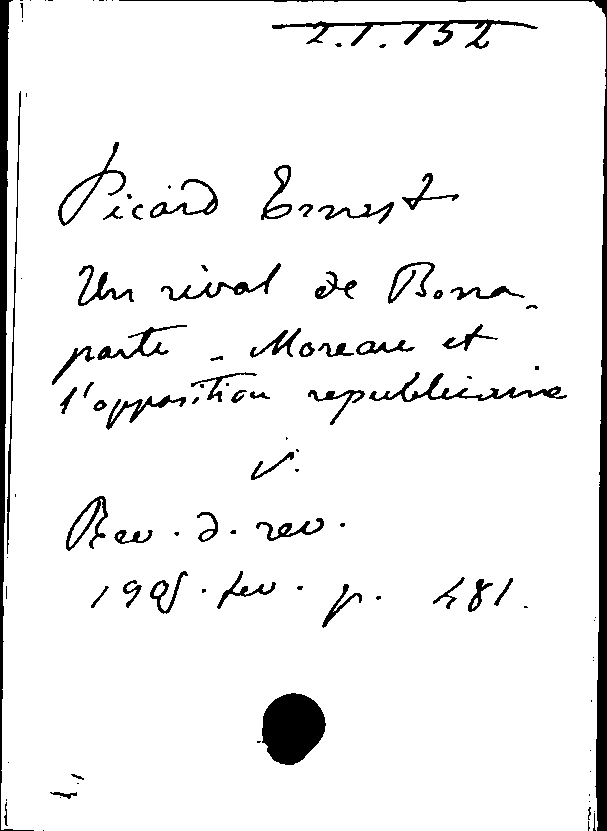 2.1.152
Picard Ernest
Un rival de Bona-
parte - Moreau et
l'opposition republicaine
v.
Rev. d. rev.
1905. fev. p. 481.